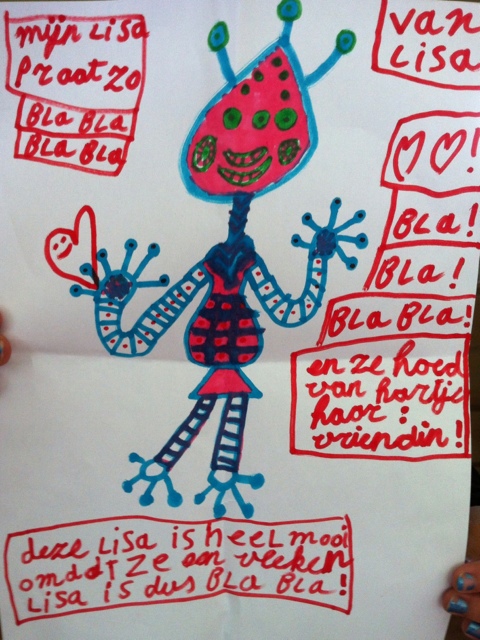 mijn Lisa
Praat zo
Bla Bla
Bla Bla
van
Lisa
♡♡!
Bla!
Bla!
Bla Bla!
en ze hoed
van hartje
haar :
vriendin!
deze Lisa is heel mooi
omdat ze en
Lisa is dus Bla Bla!